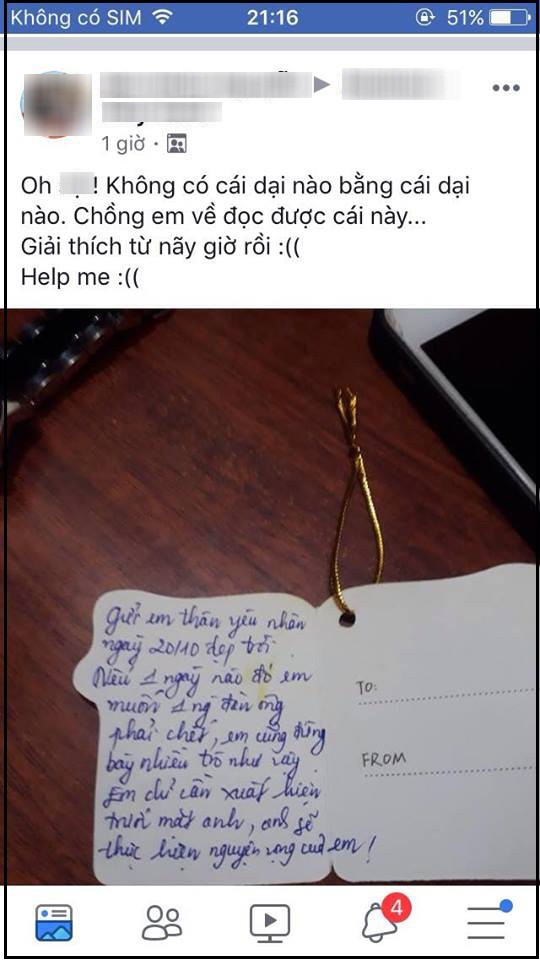 Không có SIM 21:16 51%
1 giờ
Oh ! Không có cái dại nào bằng cái dại
nào. Chồng em về đọc được cái này...
Giải thích từ nãy giờ rồi :((
Help me :((
Gửi em thân yêu nhân
ngaỳ 20/10 đẹp trời.
Nếu 1 ngaỳ nào đó em
muốn 1 ng đàn ông
phải chết, em cũng đừng
bày nhiều trò như vậy
Em chỉ cần xuất hiện
trước mắt anh, anh sẽ
thực hiện nguyện vọng của em!
TO:
FROM
4